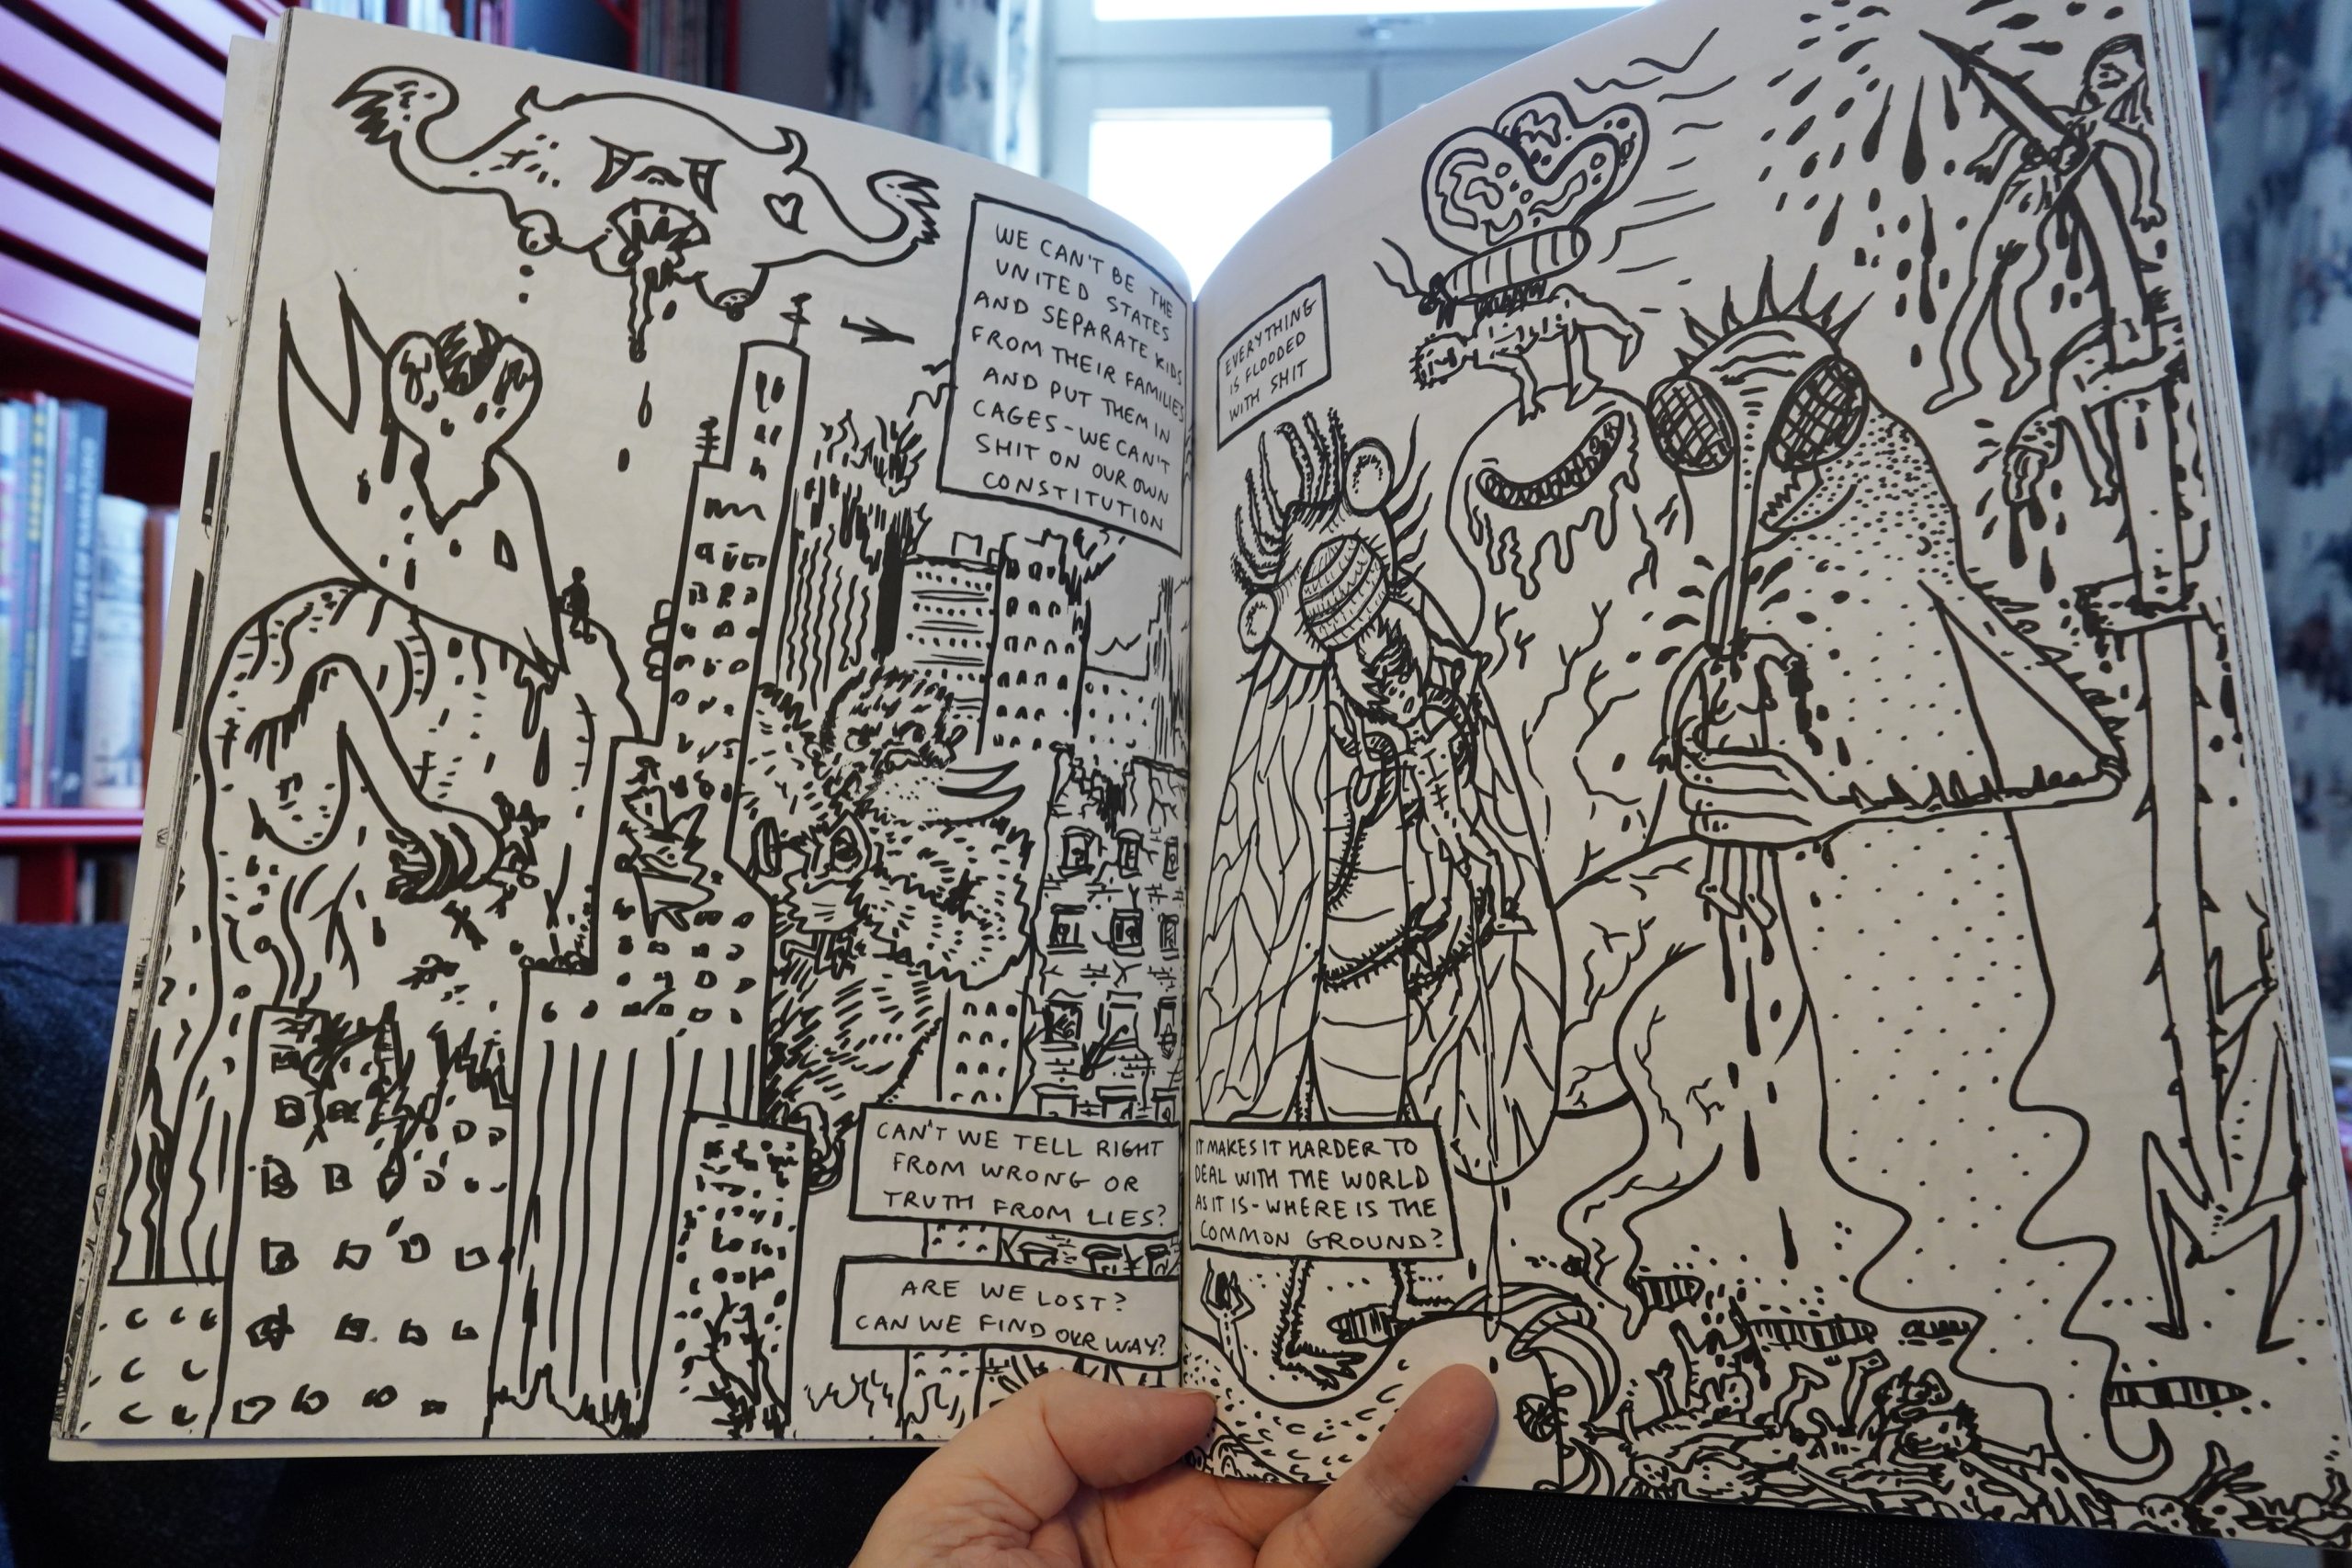 WE CAN'T BE THE
UNITED STATES
AND SEPARATE KIDS
FROM THEIR FAMILIES
AND PUT THEM IN
CAGES - WE CAN'T
SHIT ON OUR OWN
CONSTITUTION
CAN'T WE TELL RIGHT
FROM WRONG OR
TRUTH FROM LIES?
ARE WE LOST?
CAN WE FIND OUR WAY?
EVERYTHING
IS FLOODED
WITH SHIT
IT MAKES IT HARDER TO
DEAL WITH THE WORLD
AS IT IS - WHERE IS THE
COMMON GROUND?